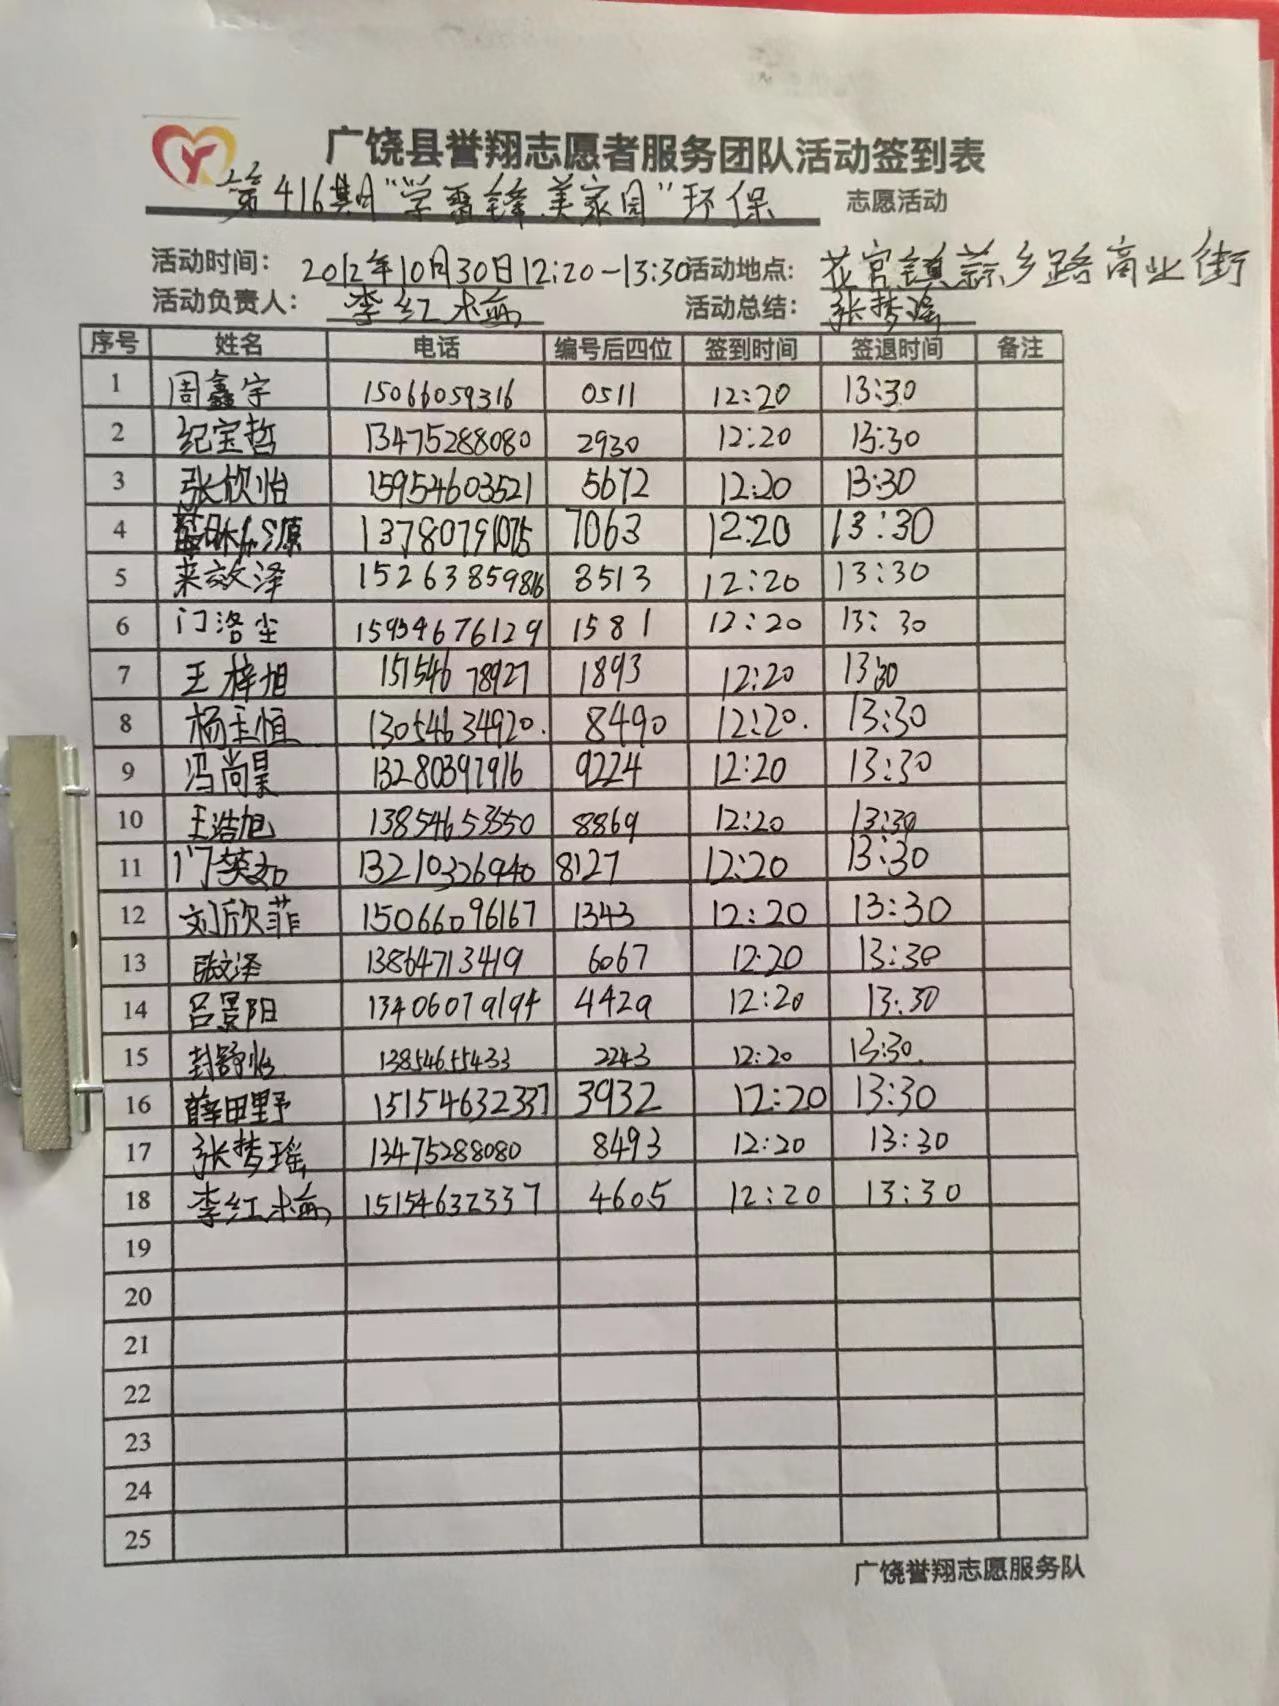 广饶县誉翔志愿者服务团队活动签到表
第416期“学雷锋美家园”环保 志愿活动
活动时间： 2012年10月30日12:20-13:30 活动地点： 花官镇蒜乡路商业街
活动负责人： 李红楠 活动总结： 张梦瑶
序号 姓名 电话 编号后四位 签到时间 签退时间 备注
1 周鑫宇 15066059316 0511 12:20 13:30
2 纪宝哲 13475288080 2930 12:20 13:30
3 张欣怡 15954603521 5672 12:20 13:30
4 13780791075 7063 12:20 13:30
5 来效泽 15263859816 8513 12:20 13:30
6 门洛尘 15954676129 1581 12:20 13:30
7 王梓旭 15154678927 1893 12:20 13:30
8 杨主恒 13054634920. 8490 12:20. 13:30
9 冯尚昊 13280397916 9224 12:20 13:30
10 王浩旭 13854653550 8869 12:20 13:30
11 门英如 13210326940 8127 12:20 13:30
12 刘欣菲 15066096167 1343 12:20 13:30
13 张文泽 13864713419 6067 12:20 13:30
14 吕景阳 13406079194 4429 12:20 13:30
15 封舒怡 13854655433 2243 12:20 13:30.
16 薛田野 15154632337 3932 12:20 13:30
17 张梦瑶 13475288080 8493 12:20 13:30
18 李红楠 15154632337 4605 12:20 13:30
19
20
21
22
23
24
25
广饶誉翔志愿服务队